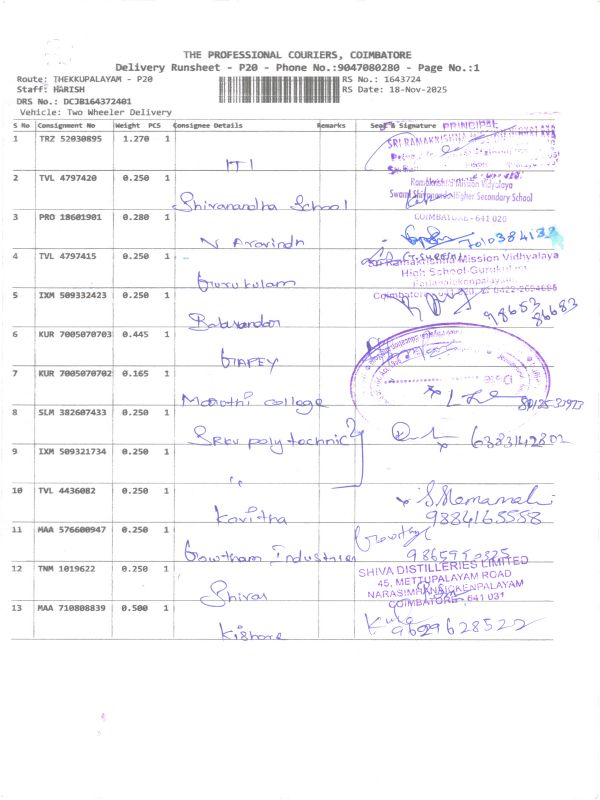 THE PROFESSIONAL COURIERS, COIMBATORE
Delivery Runsheet - P20 - Phone No.:9047080280 - Page No.:1
Route: THEKKUPALAYAM - P20 RS No.: 1643724
Staff: HARISH RS Date: 18-Nov-2025
DRS No.: DCJB164372401
Vehicle: Two Wheeler Delivery
S No Consignment No Weight PCS Consignee Details Remarks Seal & Signature PRINCIPAL
1 TRZ 52030895 1.270 1 SRI RAMAKRISHNA MISSION VIDYALAYA
ITI
2 TVL 4797420 0.250 1 Ramakrishna Mission Vidyalaya
Shivanandha School Swami Shivananda Higher Secondary School
3 PRO 18601901 0.280 1 COIMBATORE - 641 020
N Aravindh
4 TVL 4797415 0.250 1 Sri Ramakrishna Mission Vidyalaya
Gurukulam High School-Gurukulam
Periyanaickenpalayam
5 IXM 509332423 0.250 1 Coimbatore
Balasundar 98653 86683
6 KUR 7005070703 0.445 1
7 KUR 7005070702 0.165 1 Date
Maruthi College
8 SLM 382607433 0.250 1
SRKV polytechnic 6383142802
9 IXM 509321734 0.250 1
"
10 TVL 4436082 0.250 1
Kavitha 9884165558
11 MAA 576600947 0.250 1 Gowtham
Gowtham industries
12 TNM 1019622 0.250 1 SHIVA DISTILLERIES LIMITED
45, METTUPALAYAM ROAD
Shiva NARASIMHANAICKENPALAYAM
COIMBATORE - 641 031
13 MAA 710808839 0.500 1
Kishore 9629628522